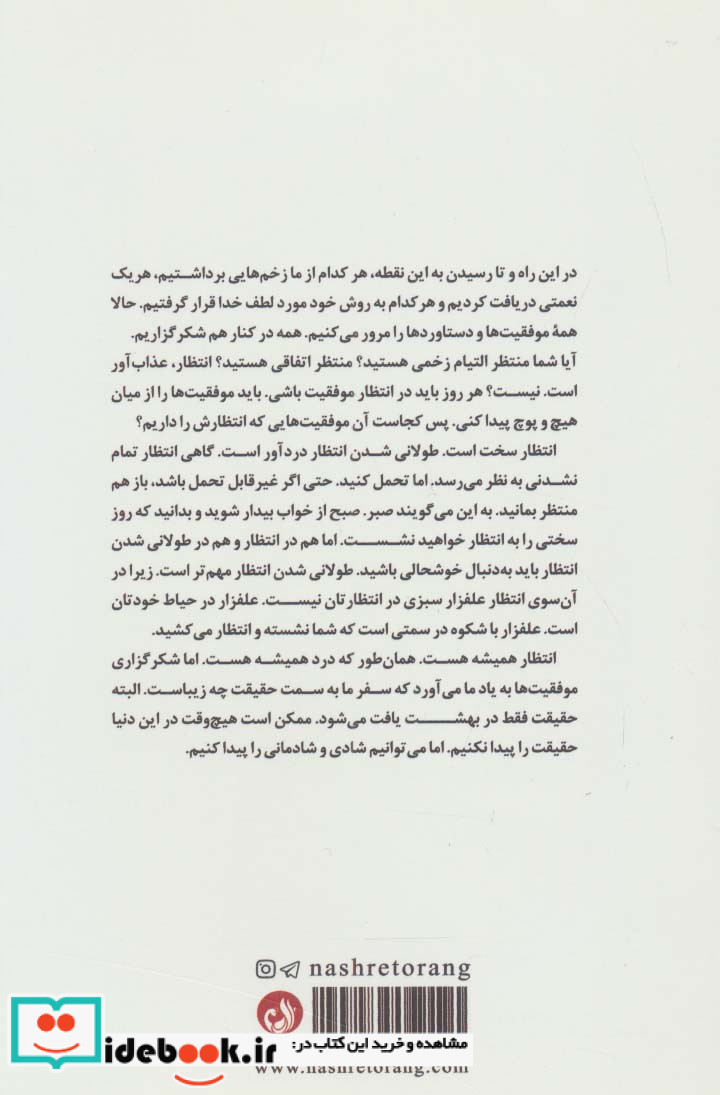 در این راه و تا رسیدن به این نقطه، هر کدام از ما زخم‌هایی برداشتیم، هریک
نعمتی دریافت کردیم و هرکدام به روش خود مورد لطف خدا قرار گرفتیم. حالا
همهٔ موفقیت‌ها و دستاوردها را مرور می‌کنیم. همه در کنار هم شکرگزاریم.
آیا شما منتظر التیام زخمی هستید؟ منتظر اتفاقی هستید؟ انتظار، عذاب‌آور
است. نیست؟ هر روز باید در انتظار موفقیت باشی. باید موفقیت‌ها را از میان
هیچ و پوچ پیدا کنی. پس کجاست آن موفقیت‌هایی که انتظارش را داریم؟
انتظار سخت است. طولانی شدن انتظار دردآور است. گاهی انتظار تمام
نشدنی به نظر می‌رسد. اما تحمل کنید. حتی اگر غیرقابل تحمل باشد، باز هم
منتظر بمانید. به این می‌گویند صبر. صبح از خواب بیدار شوید و بدانید که روز
سختی را به انتظار خواهید نشست. اما هم در انتظار و هم در طولانی شدن
انتظار باید به‌دنبال خوشحالی باشید. طولانی شدن انتظار مهم‌تر است. زیرا در
آن‌سوی انتظار علفزار سبزی در انتظارتان نیست. علفزار در حیاط خودتان
است. علفزار با شکوه در سمتی است که شما نشسته و انتظار می‌کشید.
انتظار همیشه هست. همان‌طور که درد همیشه هست. اما شکرگزاری
موفقیت‌ها به یاد ما می‌آورد که سفر ما به سمت حقیقت چه زیباست. البته
حقیقت فقط در بهشت یافت می‌شود. ممکن است هیچ‌وقت در این دنیا
حقیقت را پیدا نکنیم. اما می‌توانیم شادی و شادمانی را پیدا کنیم.
nashretorang
مشاهده و خرید این کتاب در:
idebook.ir
www.nashretorang.com